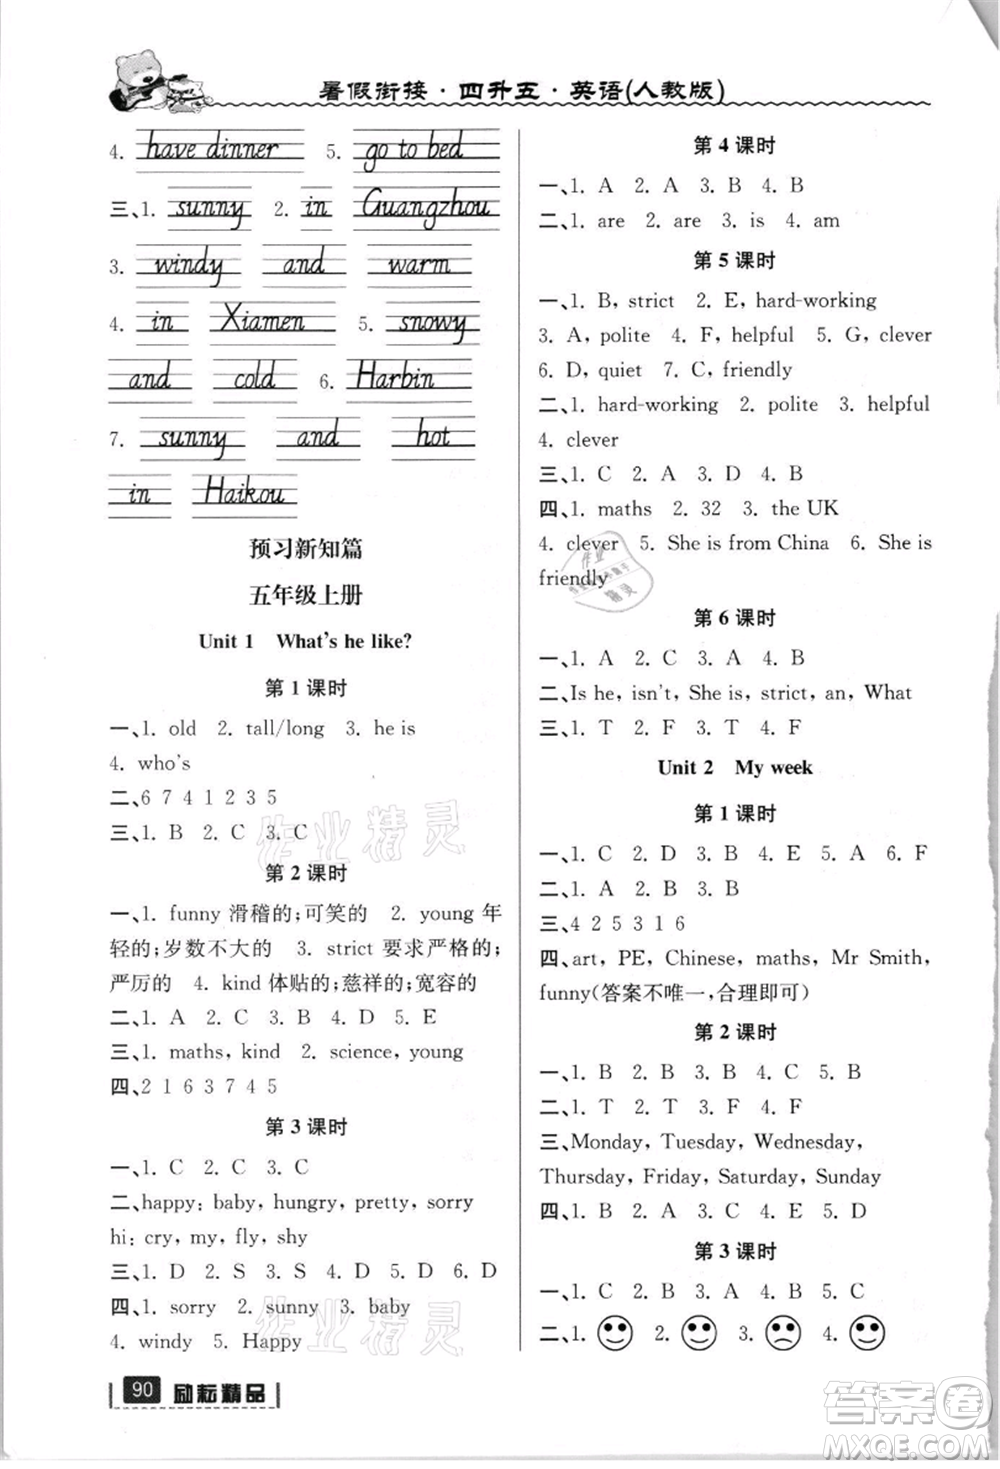 暑假衔接·四升五·英语(人教版)
4. have dinner 5. go to bed
三、1. sunny 2. in Guangzhou
3. windy and warm
4. in Xiamen 5. snowy
and cold 6. Harbin
7. sunny and hot
in Haikou
预习新知篇
五年级上册
Unit 1 What's he like?
第 1 课时
一、1. old 2. tall/long 3. he is
4. who's
二、6 7 4 1 2 3 5
三、1. B 2. C 3. C
第 2 课时
一、1. funny 滑稽的;可笑的 2. young 年
轻的;岁数不大的 3. strict 要求严格的;
严厉的 4. kind 体贴的;慈祥的;宽容的
二、1. A 2. C 3. D 4. B 5. E
三、1. maths, kind 2. science, young
四、2 1 6 3 7 4 5
第 3 课时
一、1. C 2. C 3. C
二、happy: baby, hungry, pretty, sorry
hi: cry, my, fly, shy
三、1. D 2. S 3. S 4. D 5. S 6. D
四、1. sorry 2. sunny 3. baby
4. windy 5. Happy
90 励耘精品
第 4 课时
一、1. A 2. A 3. B 4. B
二、1. are 2. are 3. is 4. am
第 5 课时
一、1. B, strict 2. E, hard-working
3. A, polite 4. F, helpful 5. G, clever
6. D, quiet 7. C, friendly
二、1. hard-working 2. polite 3. helpful
4. clever
三、1. C 2. A 3. D 4. B
四、1. maths 2. 32 3. the UK
4. clever 5. She is from China 6. She is
friendly
第 6 课时
一、1. A 2. C 3. A 4. B
二、Is he, isn't, She is, strict, an, What
三、1. T 2. F 3. T 4. F
Unit 2 My week
第 1 课时
一、1. C 2. D 3. B 4. E 5. A 6. F
二、1. A 2. B 3. B
三、4 2 5 3 1 6
四、art, PE, Chinese, maths, Mr Smith,
funny(答案不唯一,合理即可)
第 2 课时
一、1. B 2. B 3. B 4. C 5. B
二、1. T 2. T 3. F 4. F
三、Monday, Tuesday, Wednesday,
Thursday, Friday, Saturday, Sunday
四、1. B 2. A 3. C 4. E 5. D
第 3 课时
一、1. C 2. C 3. B 4. B 5. C
二、1. 2. 3. 4.
作业精灵
作业精灵
答案圈
MXQE.COM